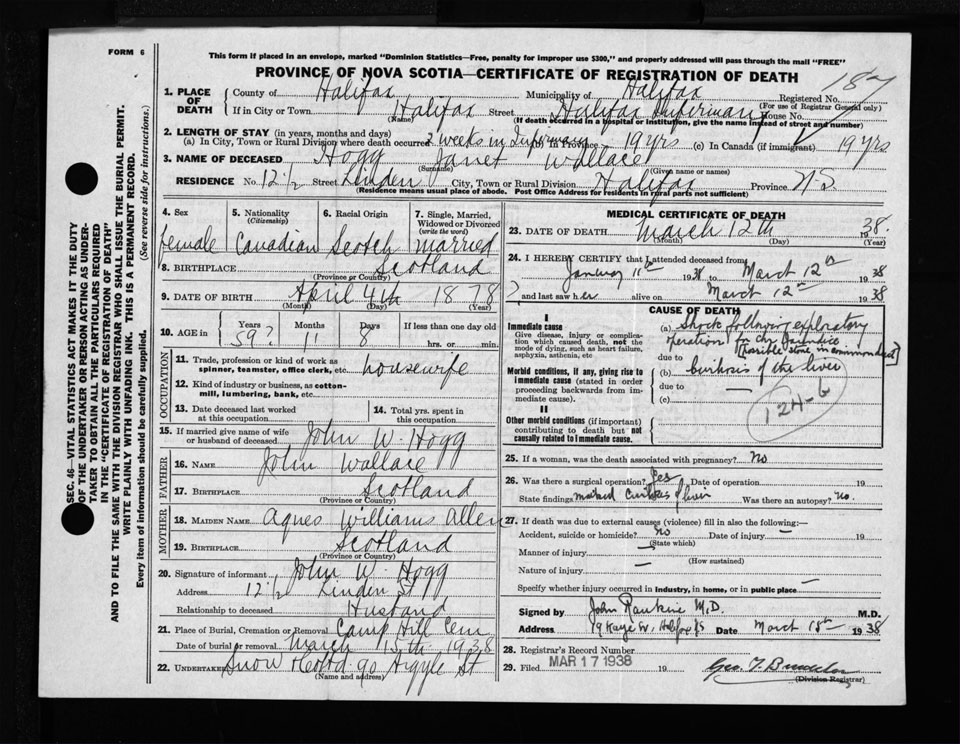 FORM 6
This form if placed in an envelope, marked "Dominion Statistics—Free, penalty for improper use $300," and properly addressed will pass through the mail "FREE"
PROVINCE OF NOVA SCOTIA—CERTIFICATE OF REGISTRATION OF DEATH
187
1. PLACE OF DEATH County of Halifax Municipality of Halifax Registered No.
(For use of Registrar General only)
If in City or Town Halifax Street Halifax Infirmary House No.
(Name) (If death occurred in a hospital or institution, give the name instead of street and number)
2. LENGTH OF STAY (in years, months and days)
(a) In City, Town or Rural Division where death occurred 2 weeks in Infirmary In Province 19 yrs (c) In Canada (if immigrant) 19 yrs
3. NAME OF DECEASED Hogg Janet Wallace
(Surname) (Given name or names)
RESIDENCE No. 12 1/2 Street Linden City, Town or Rural Division Halifax Province N.S.
(Residence means usual place of abode. Post Office Address for residents in rural parts not sufficient)
4. Sex female
5. Nationality (Citizenship) Canadian
6. Racial Origin Scotch
7. Single, Married, Widowed or Divorced (write the word) married
8. BIRTHPLACE Scotland
(Province or Country)
9. DATE OF BIRTH April 4th 1878
(Month) (Day) (Year)
10. AGE in Years 59? Months 11 Days 8 If less than one day old hrs. or min.
OCCUPATION
11. Trade, profession or kind of work as spinner, teamster, office clerk, etc. housewife
12. Kind of industry or business, as cotton-mill, lumbering, bank, etc.
13. Date deceased last worked at this occupation
14. Total yrs. spent in this occupation
15. If married give name of wife or husband of deceased John W. Hogg
FATHER
16. NAME John Wallace
17. BIRTHPLACE Scotland
(Province or Country)
MOTHER
18. MAIDEN NAME Agnes Williams Allen
19. BIRTHPLACE Scotland
(Province or Country)
20. Signature of informant John W. Hogg
Address 12 1/2 Linden St
Relationship to deceased Husband
21. Place of Burial, Cremation or Removal Camp Hill Cem
Date of burial or removal March 15th 1938
22. UNDERTAKER Snow & Co Ltd 90 Argyle St
(Name and address)
MEDICAL CERTIFICATE OF DEATH
23. DATE OF DEATH March 12th 1938.
(Month) (Day) (Year)
24. I HEREBY CERTIFY that I attended deceased from
January 11th 1938 to March 12th 1938
and last saw her alive on March 12th 1938
CAUSE OF DEATH
I
Immediate cause
Give disease, injury or complication which caused death, not the mode of dying, such as heart failure, asphyxia, asthenia, etc
(a) Shock following exploratory operation for
[possible stone in common duct]
due to
Morbid conditions, if any, giving rise to immediate cause (stated in order proceeding backwards from immediate cause).
(b) Cirrhosis of the liver
due to
(c)
124-G
II
Other morbid conditions (if important) contributing to death but not causally related to immediate cause.
25. If a woman, was the death associated with pregnancy? No
26. Was there a surgical operation? Yes Date of operation 19
State findings marked cirrhosis of liver Was there an autopsy? No.
27. If death was due to external causes (violence) fill in also the following:—
Accident, suicide or homicide? No Date of injury — 19
(State which)
Manner of injury —
(How sustained)
Nature of injury —
Specify whether injury occurred in industry, in home, or in public place —
Signed by John Rankine M.D. M.D.
Address 79 Kaye St. Halifax NS Date March 15th 1938
28. Registrar's Record Number
29. Filed MAR 17 1938 19
(Division Registrar)
SEC. 46—VITAL STATISTICS ACT MAKES IT THE DUTY
OF THE UNDERTAKER OR PERSON ACTING AS UNDER-
TAKER TO OBTAIN ALL THE PARTICULARS REQUIRED
IN THE "CERTIFICATE OF REGISTRATION OF DEATH"
AND TO FILE THE SAME WITH THE DIVISION REGISTRAR WHO SHALL ISSUE THE BURIAL PERMIT.
WRITE PLAINLY WITH UNFADING INK. THIS IS A PERMANENT RECORD.
Every item of information should be carefully supplied. (See reverse side for instructions.)